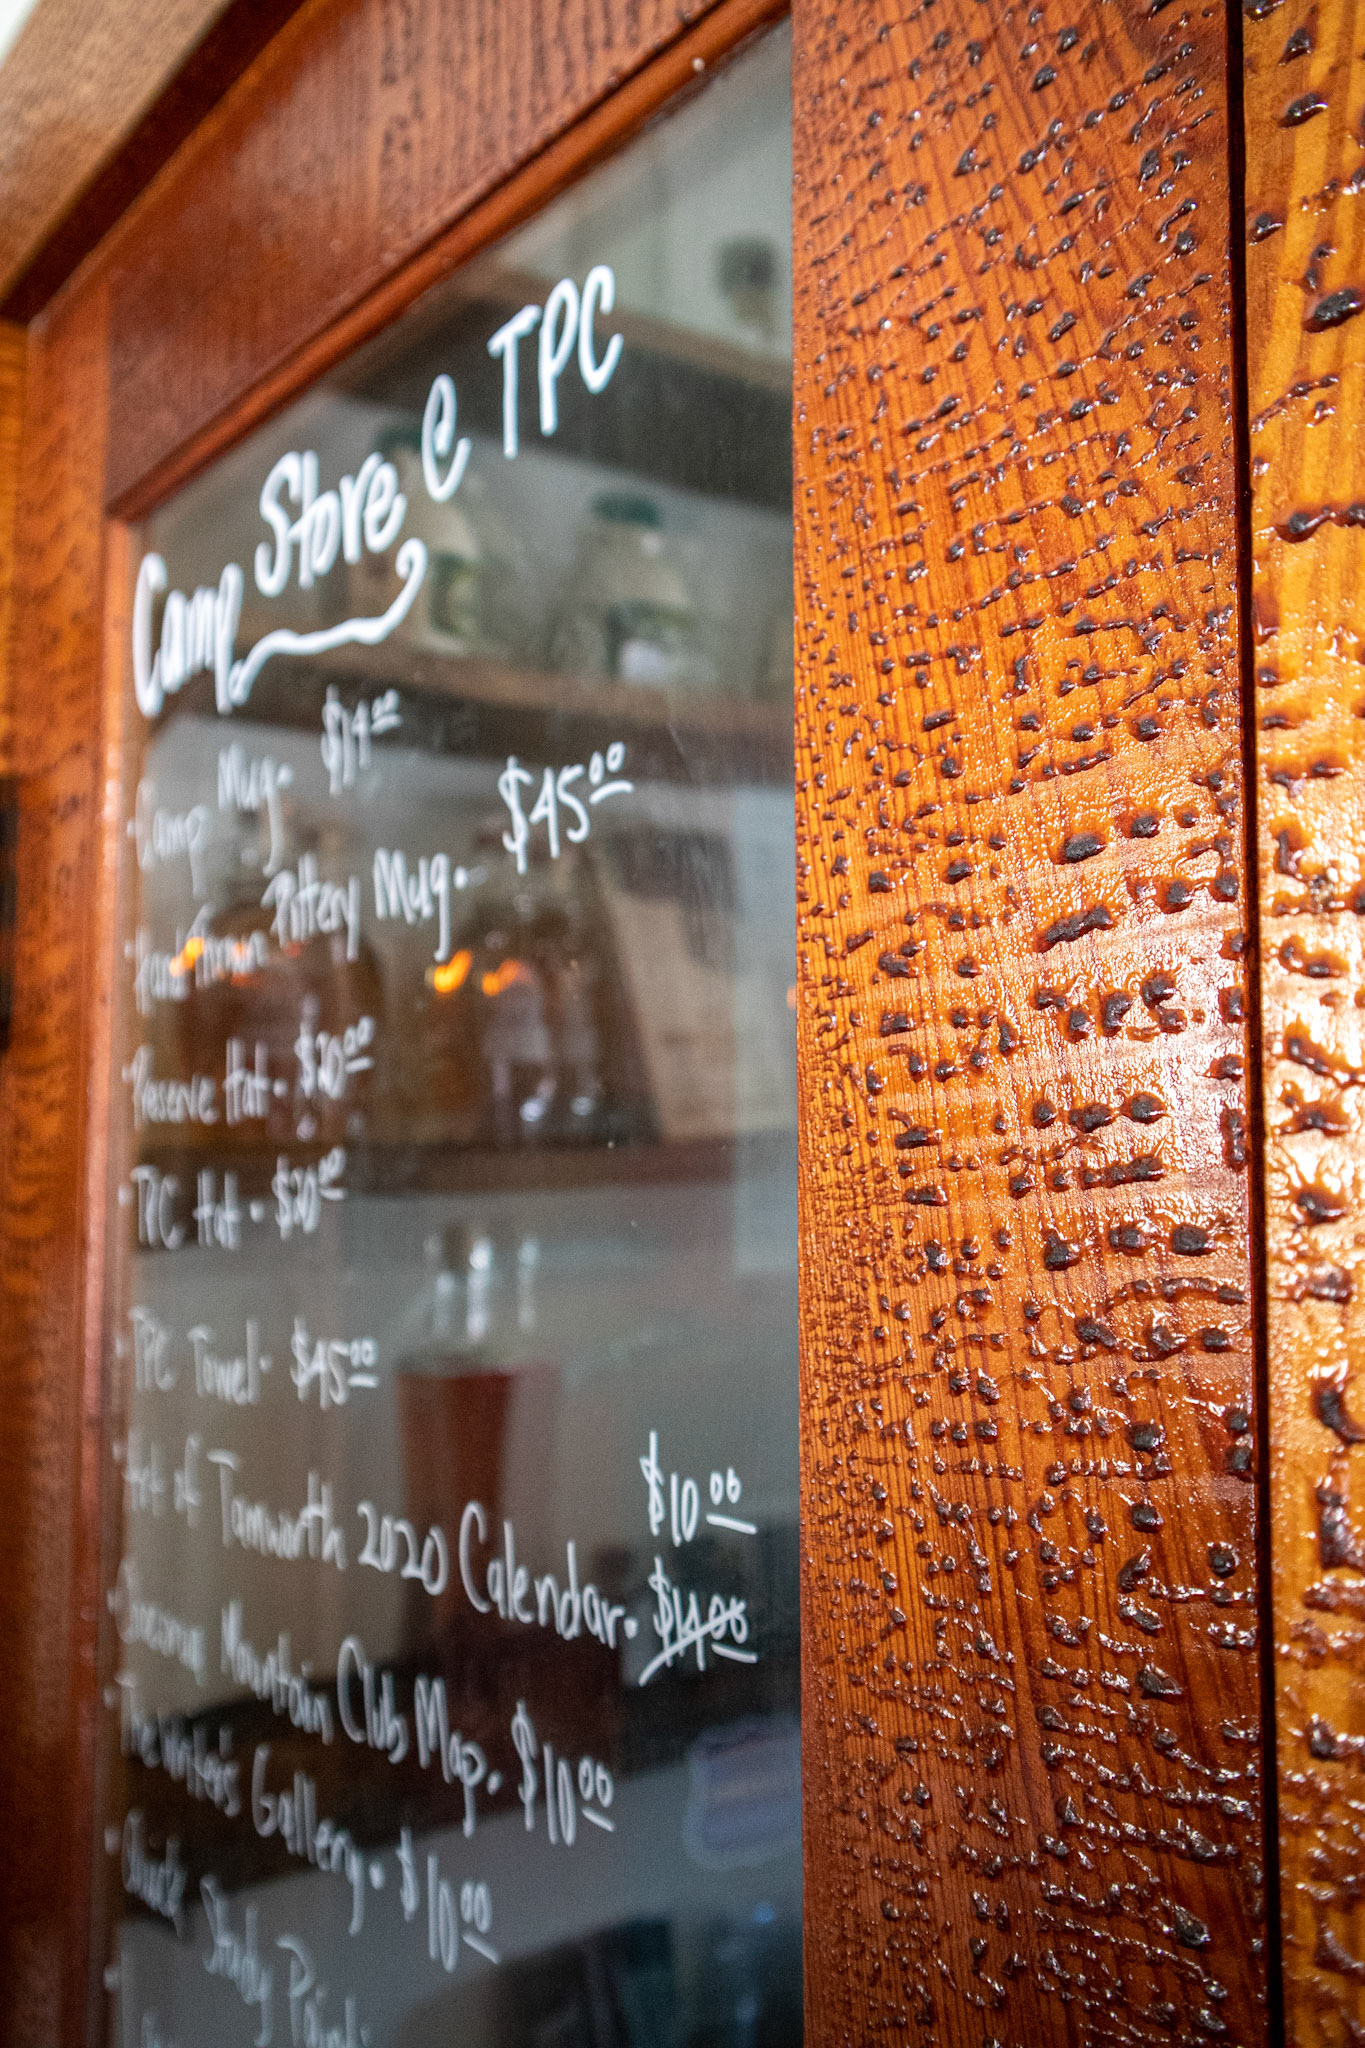 Camp Store @ TPC
Camp Mug - $14.00
Hand Thrown Pottery Mug - $45.00
Preserve Hat - $20.00
TPC Hat - $20.00
TPC Towel - $45.00
Art of Tamworth 2020 Calendar - $10.00 $14.00
Mountain Club Map - $10.00
The Writer's Gallery - $10.00
Study